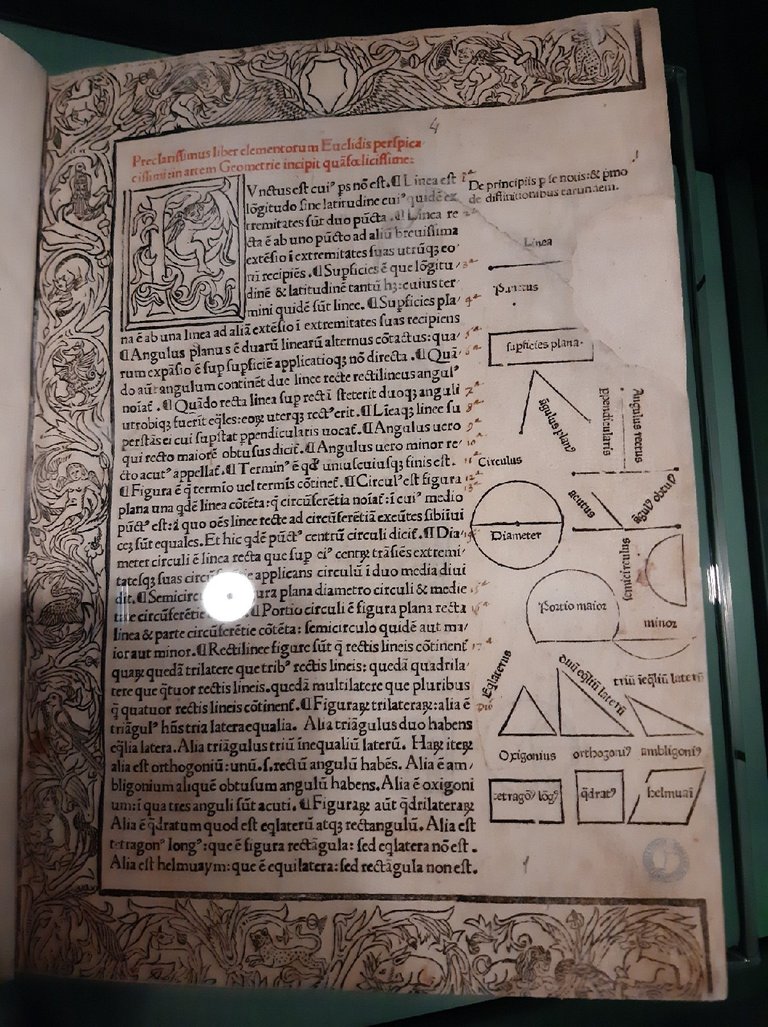 4
Preclarissimus liber elementorum Euclidis perspica
cissimi: in artem Geometrie incipit quãfœlicissime:
PVnctus est cuiꝰ ps nõ est. ¶ Linea est
lõgitudo sine latitudine cuiꝰ quidẽ ex
tremitates sũt duo pũcta. ¶ Linea re
cta ẽ ab uno pũcto ad aliũ breuissima
extẽsio ĩ extremitates suas utrũqꝫ eo
rũ recipiẽs. ¶ Supficies ẽ que lõgitu
dinẽ & latitudinẽ tantũ hꝫ: cuius ter
mini quidẽ sũt linee. ¶ Supficies pla
na ẽ ab una linea ad aliã extẽsio ĩ extremitates suas recipiens
¶ Angulus planus ẽ duarũ linearũ alternus cõtactus: qua
rum expãsio ẽ sup supficiẽ applicatioqꝫ nõ directa. ¶ Quã
do aũt angulum continẽt due linee recte rectilineus angulꝰ
noiat̃. ¶ Quãdo recta linea sup rectã steterit duoqꝫ anguli
utrobiqꝫ fuerit eq̃les: eoꝝ uterqꝫ rectꝰ erit. ¶ Lĩeaqꝫ linee su
perstãs ei cui supstat ppendicularis uocat̃. ¶ Angulus uero
qui recto maiorẽ obtusus dicit̃. ¶ Angulus uero minor re
cto acutꝰ appellat̃. ¶ Terminꝰ ẽ qd̃ uniuscuiusqꝫ finis est.
¶ Figura ẽ q̃ termĩo uel termĩs cõtinet̃. ¶ Circulꝰ est figura
plana una qdẽ linea cõtẽta: q̃ circũferẽtia noiat̃: ĩ cuiꝰ medio
pũctꝰ est: ã quo oẽs linee recte ad circũferẽtiã exeũtes sibiĩui
cẽ sũt equales. Et hic qdẽ pũctꝰ centrũ circuli dicit̃. ¶ Dia
meter circuli ẽ linea recta que sup eiꝰ centꝝ trãsiẽs extremi
tatesqꝫ suas circũferẽtie applicans circulũ ĩ duo media diui
dit. ¶ Semicirculus ẽ figura plana diametro circuli & medie
tate circũferẽtie cõtẽta. ¶ Portio circuli ẽ figura plana recta
linea & parte circũferẽtie cõtẽta: semicirculo quidẽ aut ma
ior aut minor. ¶ Rectilinee figure sũt q̃ rectis lineis cõtinent̃
quaꝝ quedã trilatere que tribꝰ rectis lineis: quedã quadrila
tere que q̃tuor rectis lineis. quedã multilatere que pluribus
q̃ quatuor rectis lineis cõtinent̃. ¶ Figuraꝝ trilateraꝝ: alia ẽ
triãgulꝰ hñs tria latera equalia. Alia triãgulus duo habens
eq̃lia latera. Alia triãgulus triũ inequaliũ laterũ. Haꝝ iteꝝ
alia est orthogoniũ: unũ.s. rectũ angulũ habẽs. Alia ẽ am
bligonium aliquẽ obtusum angulũ habens. Alia ẽ oxigoni
um: ĩ qua tres anguli sũt acuti. ¶ Figuraꝝ aũt q̃drilateraꝝ
Alia ẽ q̃dratum quod est eq̃laterũ atqꝫ rectangulũ. Alia est
tetragonꝰ longꝰ: que ẽ figura rectãgula: sed eq̃latera nõ est.
Alia est helmuaym: que ẽ equilatera: sed rectãgula non est.
De principiis p se notis: & pmo
de diffinitionibus earundem.
Linea
Pũctus
supficies plana.
ãgulus planꝰ
ppendicularis
Angulus rectus
Circulus
acutus
Diameter
semicirculus
Portio maior
minor
Eq̃laterus
duũ eq̃liũ laterũ
triũ ĩeq̃liũ laterũ
Oxigonius
orthogoniꝰ
ambligoniꝰ
tetragõꝰ lõgꝰ
q̃dratꝰ
helmuaĩ
1